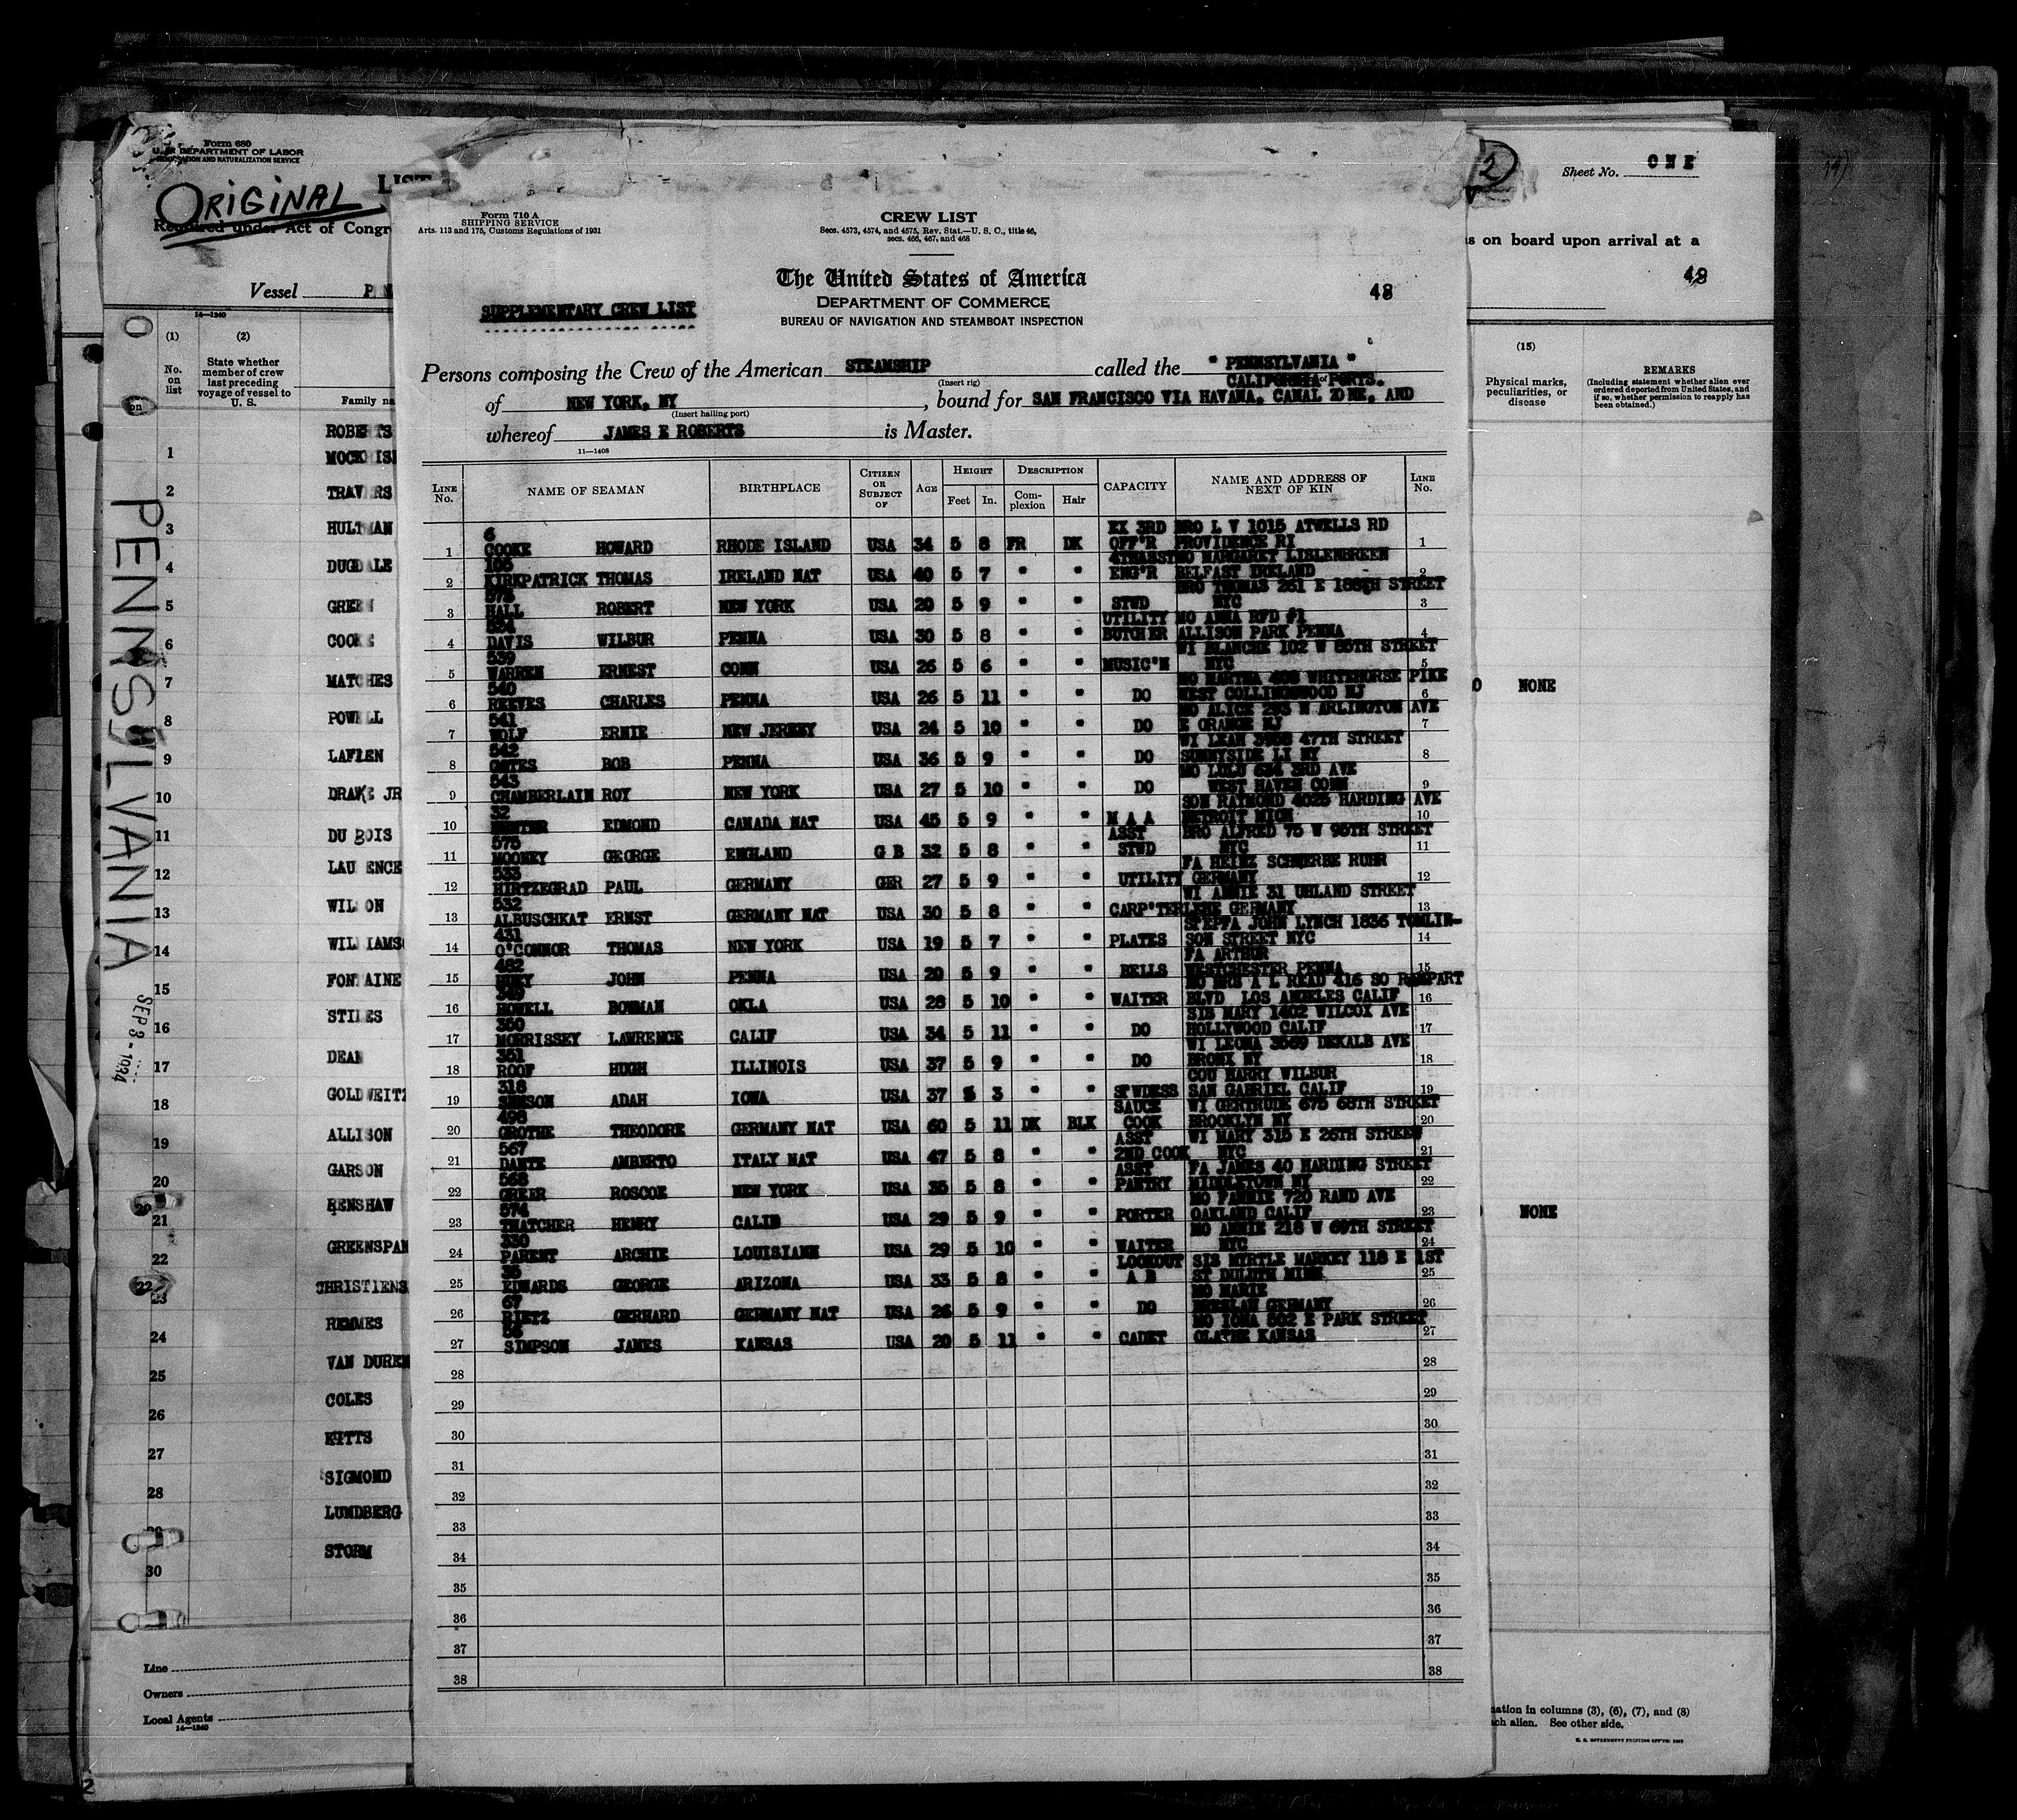 Form 680
U. S. DEPARTMENT OF LABOR
IMMIGRATION AND NATURALIZATION SERVICE
ORIGINAL
LIST
Required under Act of Congr
Vessel P N
14—1240
(1) (2)
No. on list
State whether member of crew last preceding voyage of vessel to U. S.
Family na
ROBERTS
1 MOCK ISH
2 TRAVERS
3 HULTMAN
4 DUGDALE
5 GREEN
6 COOKE
7 MATCHES
8 POWELL
9 LAFLEN
10 DRAKE JR
11 DU BOIS
12 LAU ENCE
13 WIL ON
14 WILLIAMS
15 FONTAINE
16 STILES
17 DEAN
18 GOLDWEIT
19 ALLISON
20 GARSON
21 RENSHAW
22 GREENSPAN
23 CHRISTIENS
24 REMMES
25 VAN DUREN
26 COLES
27 KITTS
28 SIGMOND
29 LUNDBERG
30 STORM
PENNSYLVANIA
SEP 3 - 1934
Line
Owners
Local Agents
14—1240
Form 710 A
SHIPPING SERVICE
Arts. 113 and 175, Customs Regulations of 1931
CREW LIST
Secs. 4573, 4574, and 4575, Rev. Stat.—U. S. C., title 46,
secs. 466, 467, and 468
The United States of America
DEPARTMENT OF COMMERCE
BUREAU OF NAVIGATION AND STEAMBOAT INSPECTION
SUPPLEMENTARY CREW LIST
48
Persons composing the Crew of the American STEAMSHIP called the " PENNSYLVANIA "
(Insert rig)
CALIFORNIA PORTS.
of NEW YORK, NY, bound for SAN FRANCISCO VIA HAVANA, CANAL ZONE, AND
(Insert hailing port)
whereof JAMES E ROBERTS is Master.
11—1408
LINE No. NAME OF SEAMAN BIRTHPLACE CITIZEN OR SUBJECT OF AGE HEIGHT Feet In. DESCRIPTION Complexion Hair CAPACITY NAME AND ADDRESS OF NEXT OF KIN LINE No.
6 EX 3RD BRO L V 1015 ATWELLS RD
1 COOKE HOWARD RHODE ISLAND USA 34 5 8 FR DK OFF'R PROVIDENCE RI 1
105 4THASST MO MARGARET LISLENBREEN
2 KIRKPATRICK THOMAS IRELAND NAT USA 40 5 7 " " ENG'R BELFAST IRELAND 2
573 BRO THOMAS 261 E STREET
3 HALL ROBERT NEW YORK USA 20 5 9 " " STWD NYC 3
534 UTILITY MO ANNA RFD #1
4 DAVIS WILBUR PENNA USA 30 5 8 " " BUTCHER ALLISON PARK PENNA 4
539 WI BLANCHE 102 W 85TH STREET
5 WARREN ERNEST CONN USA 26 5 6 " " MUSIC'N NYC 5
540 MO MARTHA 408 WHITEHORSE PIKE
6 REEVES CHARLES PENNA USA 26 5 11 " " DO WEST COLLINGSWOOD NJ 6
541 MO ALICE 293 N ARLINGTON AVE
7 WOLF ERNIE NEW JERSEY USA 24 5 10 " " DO E ORANGE NJ 7
542 WI LEAH 47TH STREET
8 OATES BOB PENNA USA 36 5 9 " " DO SUNNYSIDE LI NY 8
543 MO LULU 634 3RD AVE
9 CHAMBERLAIN ROY NEW YORK USA 27 5 10 " " DO WEST HAVEN CONN 9
32 SON RAYMOND 4025 HARDING AVE
10 HUNTER EDMOND CANADA NAT USA 45 5 9 " " M A A DETROIT MICH 10
575 ASST BRO ALFRED 75 W 95TH STREET
11 MOONEY GEORGE ENGLAND G B 32 5 8 " " STWD NYC 11
533 FA HEINZ SCHWERBE RUHR
12 HIRTZEGRAD PAUL GERMANY GER 27 5 9 " " UTILITY GERMANY 12
532 WI ANNIE 31 UHLAND STREET
13 ALBUSCHKAT ERNST GERMANY NAT USA 30 5 8 " " CARP'TER LEHE GERMANY 13
431 STEPFA JOHN LYNCH 1836 TOMLIN-
14 O'CONNOR THOMAS NEW YORK USA 19 5 7 " " PLATES SON STREET NYC 14
482 FA ARTHUR
15 HUEY JOHN PENNA USA 20 5 9 " " BELLS WESTCHESTER PENNA 15
349 MO MRS A L READ 416 SO RAMPART
16 HOWELL BOWMAN OKLA USA 28 5 10 " " WAITER BLVD LOS ANGELES CALIF 16
350 SIS MARY 1402 WILCOX AVE
17 MORRISSEY LAWRENCE CALIF USA 34 5 11 " " DO HOLLYWOOD CALIF 17
351 WI LEONA 3569 DEKALB AVE
18 ROOF HUGH ILLINOIS USA 37 5 9 " " DO BRONX NY 18
318 COU HARRY WILBUR
19 ADAH IOWA USA 37 5 3 " " STWDESS SAN GABRIEL CALIF 19
498 SAUCE WI GERTRUDE 675 68TH STREET
20 GROTHE THEODORE GERMANY NAT USA 60 5 11 DK BLK COOK BROOKLYN NY 20
567 ASST WI MARY 315 E 26TH STREET
21 DANTE AMBERTO ITALY NAT USA 47 5 8 " " 2ND COOK NYC 21
568 ASST FA JAMES 40 HARDING STREET
22 GREER ROSCOE NEW YORK USA 35 5 8 " " PANTRY MIDDLETOWN NY 22
574 MO FANNIE 720 RAND AVE
23 THATCHER HENRY CALIF USA 29 5 9 " " PORTER OAKLAND CALIF 23
230 MO ANNIE 218 W 69TH STREET
24 PARENT ARCHIE LOUISIANE USA 29 5 10 " " WAITER NYC 24
36 LOOKOUT SIS MYRTLE MARKEY 118 E 1ST
25 EDWARDS GEORGE ARIZONA USA 33 5 8 " " A B ST DULUTH MINN 25
67 MO MARIE
26 RIETZ GERHARD GERMANY NAT USA 26 5 9 " " DO BRESLAN GERMANY 26
56 MO IONA 502 E PARK STREET
27 SIMPSON JAMES KANSAS USA 20 5 11 " " CADET OLATHE KANSAS 27
28 28
29 29
30 30
31 31
32 32
33 33
34 34
35 35
36 36
37 37
38 38
2
Sheet No. ONE
s on board upon arrival at a
48
(15)
Physical marks, peculiarities, or disease
REMARKS
(Including statement whether alien ever ordered deported from United States, and if so, whether permission to reapply has been obtained.)
NONE
NONE
mation in columns (3), (6), (7), and (8)
ch alien. See other side.